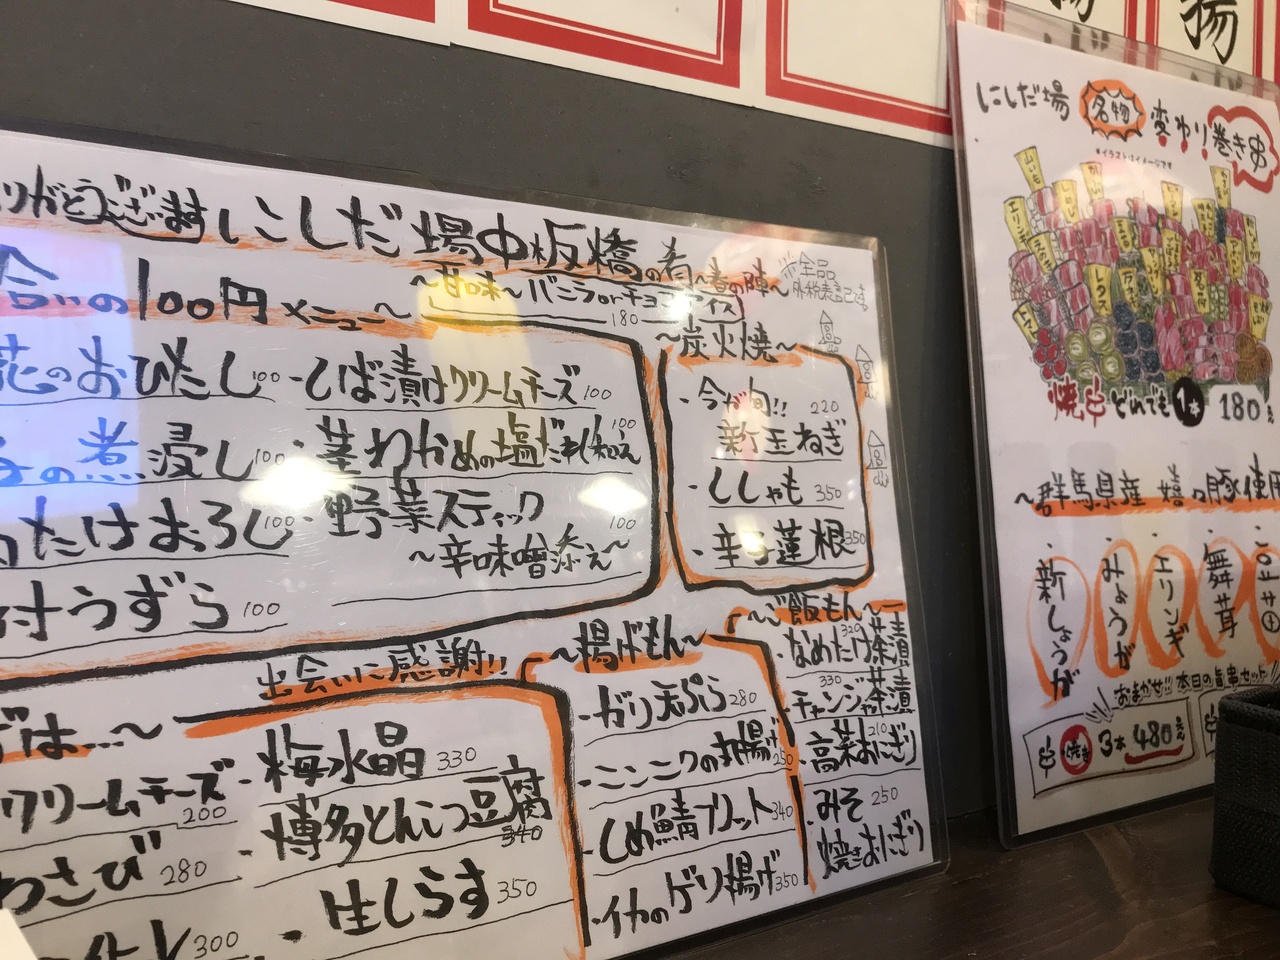 りがとうございます
にしだ場中板橋の肴〜春の陣〜
※全品
外税表記です
合いの100円メニュー〜
〜甘味〜バニラorチョコアイス
180
花のおひたし 100
・しば漬けクリームチーズ 100
の煮浸し 100
・茎わかめの塩だれ和え 100
たけおろし 100
・野菜スティック 100
〜辛味噌添え〜
付うずら 100
出会いに感謝!!
〜炭火焼〜
・今が旬!! 220
新玉ねぎ
・ししゃも 350
・辛子蓮根 350
では…〜
クリームチーズ 200
わさび 280
300
・梅水晶 330
・博多とんこつ豆腐 340
・生しらす 350
〜揚げもん〜
・ガリ天ぷら 280
・ニンニクの丸揚げ 250
・しめ鯖フリット 340
・イカのゲソ揚げ 350
〜ご飯もん〜
・なめたけ茶漬 320
・チャンジャ茶漬 330
・高菜おにぎり 210
・みそ 250
焼きおにぎり
揚
にしだ場 名物 変わり巻き串
※イラストはイメージです
エリンギ
レタス
トマト
焼串どれでも1本 180
〜群馬県産 嬉っ豚使用
・新しょうが
・みょうが
・エリンギ
・舞茸
おまかせ!! 本日の旨串セット
串焼き 3本 480